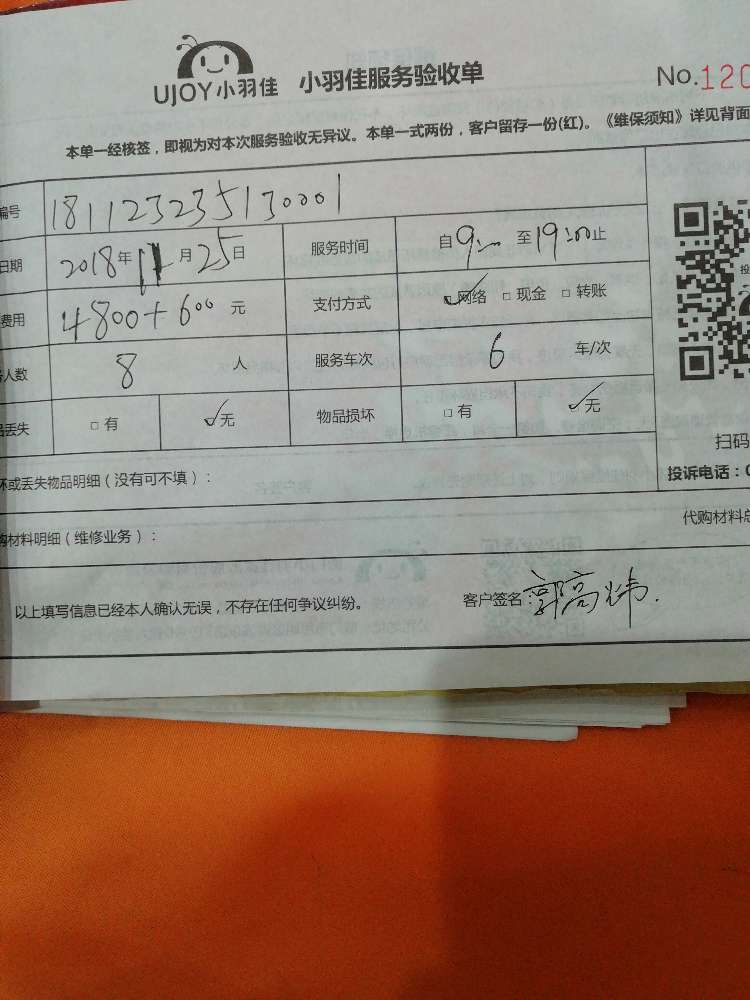 UJOY小羽佳 小羽佳服务验收单 No.120
本单一经核签，即视为对本次服务验收无异议。本单一式两份，客户留存一份(红)。《维保须知》详见背面
编号 181123235130001
日期 2018年11月25日 服务时间 自9:00至19:00止
费用 4800+600元 支付方式 ☑网络 □现金 □转账
人数 8人 服务车次 6车/次
丢失 □有 ☑无 物品损坏 □有 ☑无
扫码
坏或丢失物品明细（没有可不填）： 投诉电话：0
购材料明细（维修业务）： 代购材料总
以上填写信息已经本人确认无误，不存在任何争议纠纷。 客户签名：郭高炜.